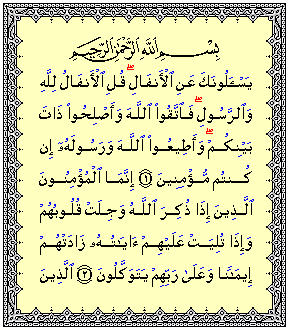 بِسْمِ ٱللَّهِ ٱلرَّحْمَٰنِ ٱلرَّحِيمِ
يَسْـَٔلُونَكَ عَنِ ٱلْأَنفَالِ ۖ قُلِ ٱلْأَنفَالُ لِلَّهِ
وَٱلرَّسُولِ ۖ فَٱتَّقُوا۟ ٱللَّهَ وَأَصْلِحُوا۟ ذَاتَ
بَيْنِكُمْ ۖ وَأَطِيعُوا۟ ٱللَّهَ وَرَسُولَهُۥٓ إِن
كُنتُم مُّؤْمِنِينَ ١ إِنَّمَا ٱلْمُؤْمِنُونَ
ٱلَّذِينَ إِذَا ذُكِرَ ٱللَّهُ وَجِلَتْ قُلُوبُهُمْ
وَإِذَا تُلِيَتْ عَلَيْهِمْ ءَايَٰتُهُۥ زَادَتْهُمْ
إِيمَٰنًا وَعَلَىٰ رَبِّهِمْ يَتَوَكَّلُونَ ٢ ٱلَّذِينَ